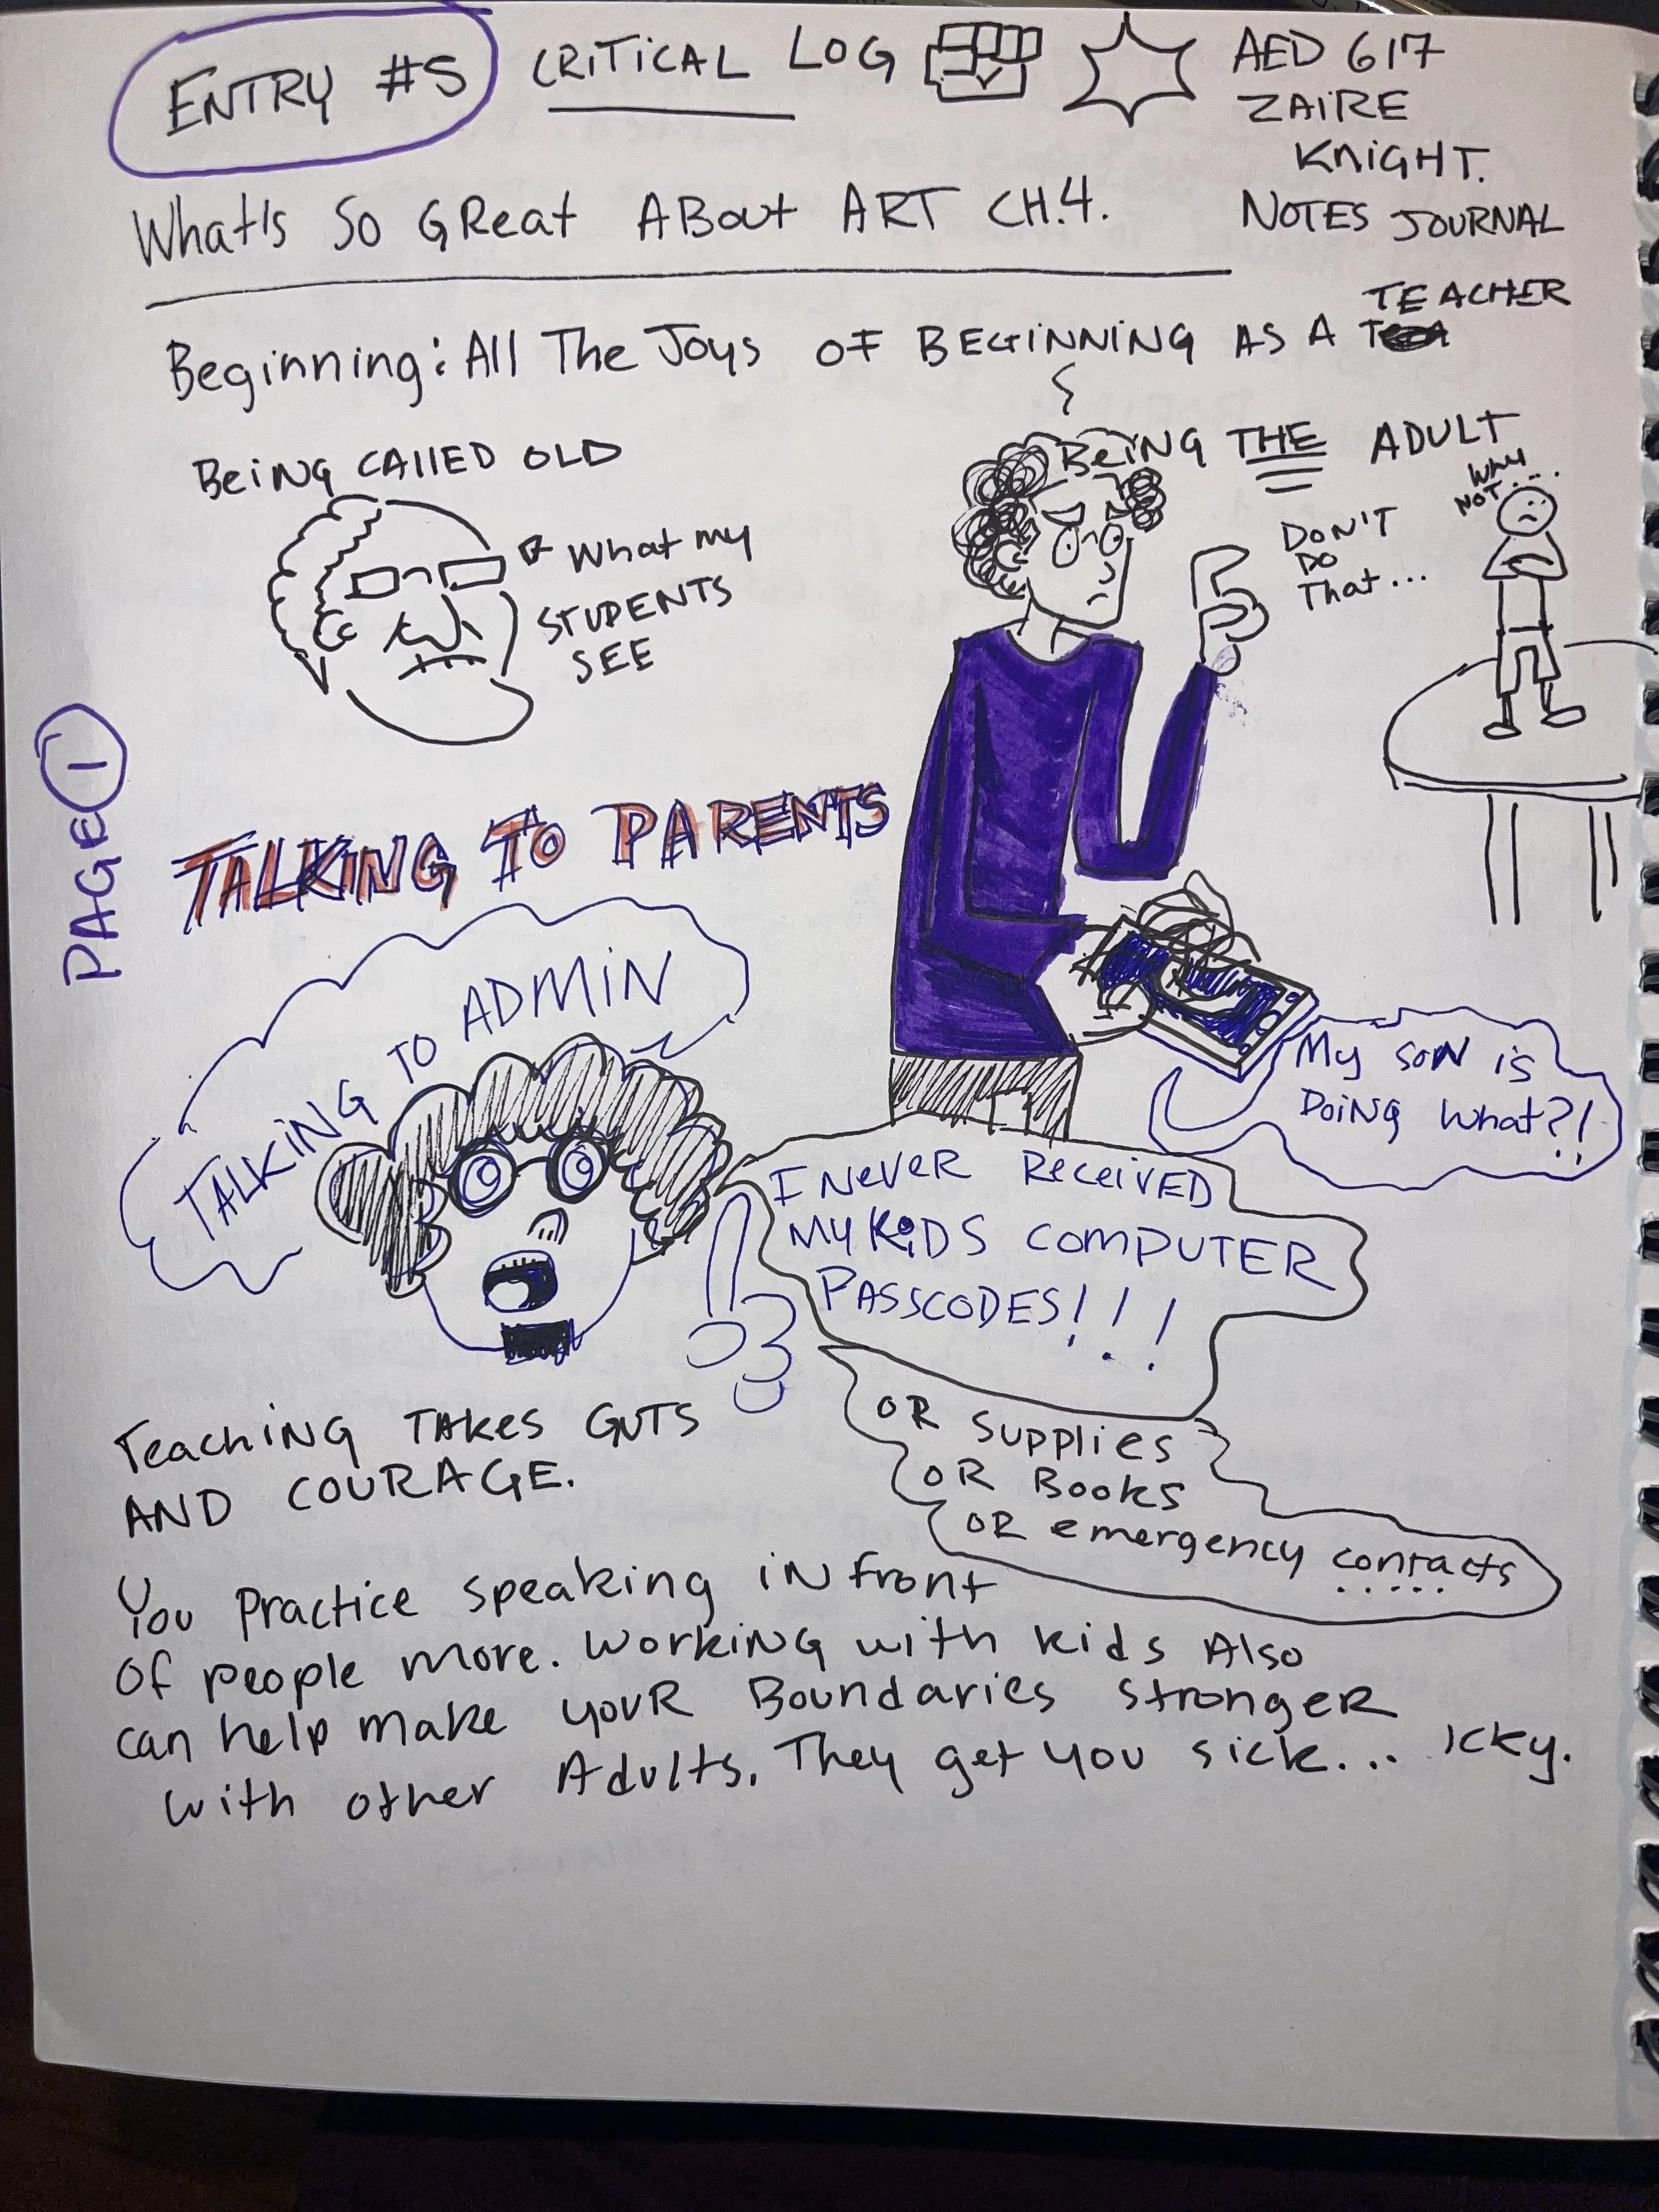 ENTRY #5 CRITICAL LOG
AED 617
ZAIRE
KNIGHT.
NOTES JOURNAL
What's So GReat ABout ART CH.4.
Beginning: All The Joys OF BEGINNING AS A
TEACHER
BeiNG CAllED OLD
What my
STUDENTS
SEE
BeiNG THE ADULT
DON'T
DO
That...
Why
NOT....
PAGE 1
TALKING TO PARENTS
TALKING TO ADMIN
My SON is
DOING What?!
I NeveR ReceivED
MY KiDS COMPUTER
PASSCODES!!!
OR Supplies
OR Books
OR emergency contacts
.....
TeachiNG TAKes GUTS
AND COURAGE.
You Practice speaking iN front
Of people more. WorkiNG with kids Also
can help make youR Boundaries stronger
with other Adults. They get you sick... Icky.